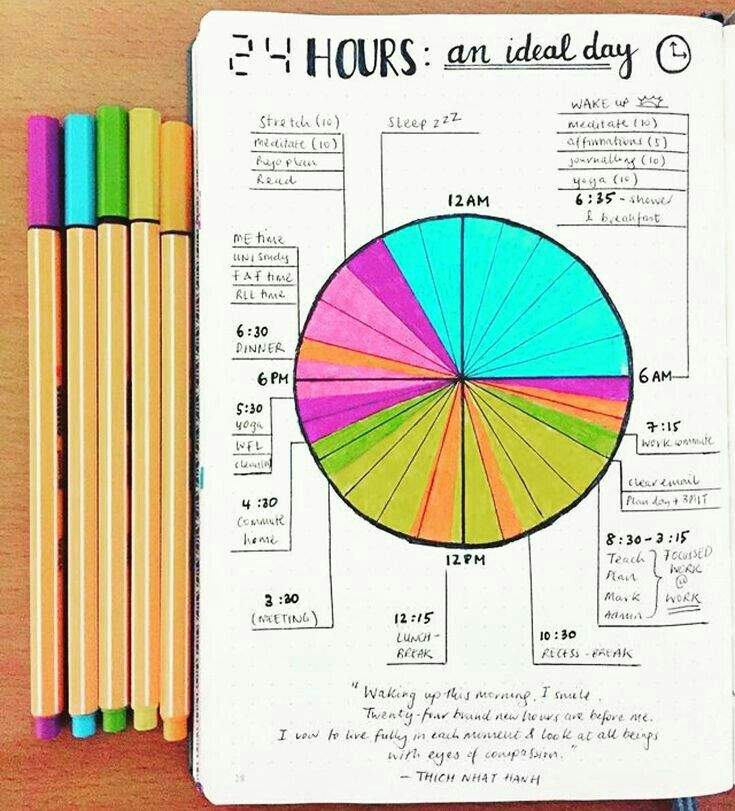 24 HOURS: an ideal day
Stretch (10)
meditate (10)
Bujo plan
Read
Sleep zzz
WAKE UP
meditate (10)
affirmations (5)
journalling (10)
yoga (10)
6:35 - shower
& breakfast
12AM
ME time
UNI study
F&F time
RLL time
6:30
DINNER
6PM
6AM
5:30
yoga
WFL
cleaning
7:15
work commute
clear email
Plan day + 3MIT
4:30
Commute
home
8:30-3:15
Teach
Plan
Mark
Admin
FOCUSSED
WORK
@
WORK
12PM
3:30
(MEETING)
12:15
LUNCH-
BREAK
10:30
RECESS-BREAK
"Waking up this morning, I smile.
Twenty-four brand new hours are before me.
I vow to live fully in each moment & look at all beings
with eyes of compassion."
- THICH NHAT HANH